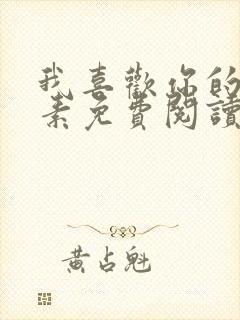 我喜歡你的
素免費閱讀
黃占魁